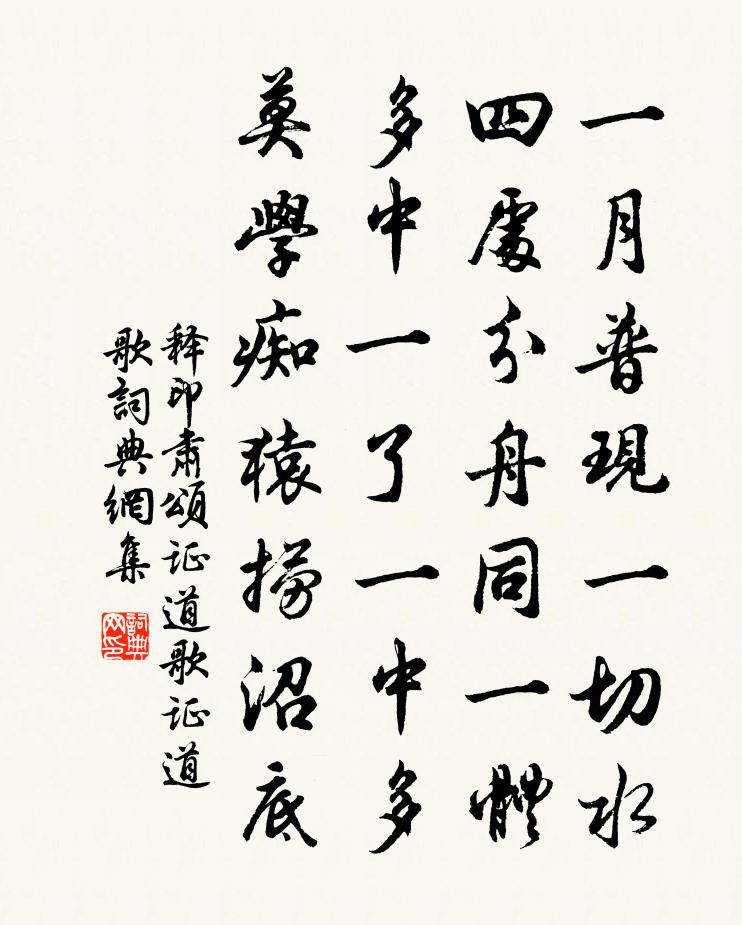 一月普現一切水
四處分舟同一體
多中一了一中多
莫學痴猿撈沼底
释印肃頌证道歌证道
歌詞典網集
詞典
网印